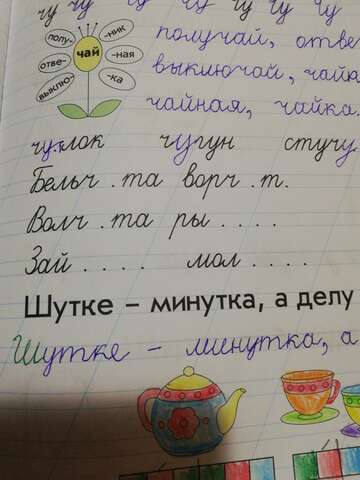 чу чу чу чу чу чу чу
полу- -ник
отве- чай -ная
выклю- -ка
получай, отве
выключай, чайн
чайная, чайка.
чулок чугун стучу
Бельч . та ворч . т.
Волч . та ры . . . .
Зай . . . . мол . . . .
Шутке – минутка, а делу
Шутке – минутка, а